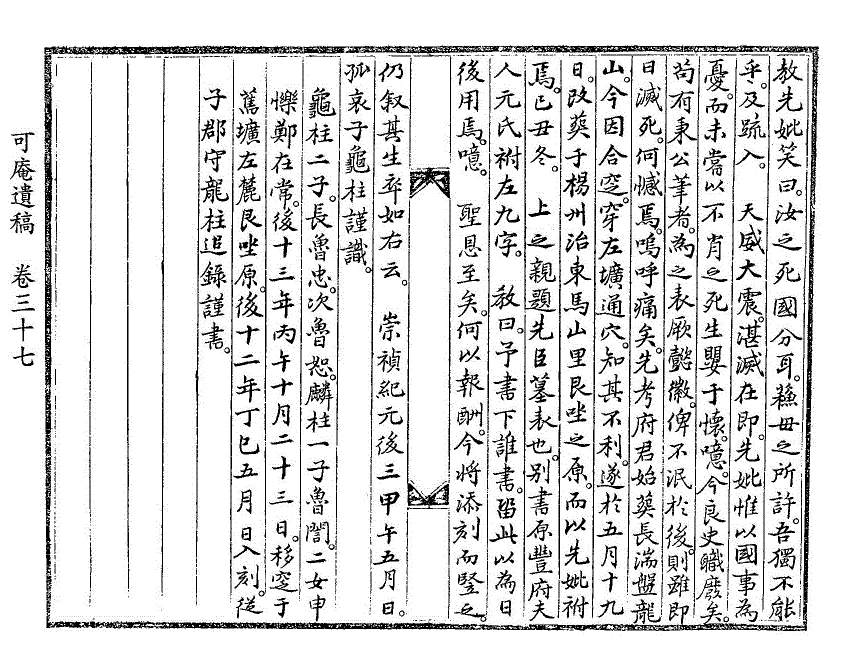 教先妣笑曰。汝之死國分耳。蘓母之所許。吾獨不能
乎。及䟽入。　天威大震。湛滅在即。先妣惟以國事為
憂。而未嘗以不肖之死生嬰于懷。噫。今良史職廢矣。
苟有秉公筆者。為之表厥懿徽。俾不泯於後。則雖即
日滅死。何憾焉。嗚呼痛矣。先考府君始葬長湍盤龍
山。今因合窆。穿左壙通穴。知其不利。遂於五月十九
日。改葬于楊州治東馬山里艮坐之原。而以先妣祔
焉。已丑冬。　上之親題先臣墓表也。别書原豐府夫
人元氏祔左九字。　教曰。予書下誰書。留此以為日
後用焉。噫。　聖恩至矣。何以報酬。今將添刻而竪之。
仍叙其生卒如右云。　崇禎紀元後三甲午五月日。
孤哀子龜柱謹識。
龜柱二子。長魯忠。次魯恕。麟柱一子魯誾。二女申
㦡鄭在常。後十三年丙午十月二十三日。移窆于
舊壙左麓艮坐原。後十二年丁巳五月日入刻。從
子郡守龍柱追錄謹書。
可庵遺稿　卷三十七